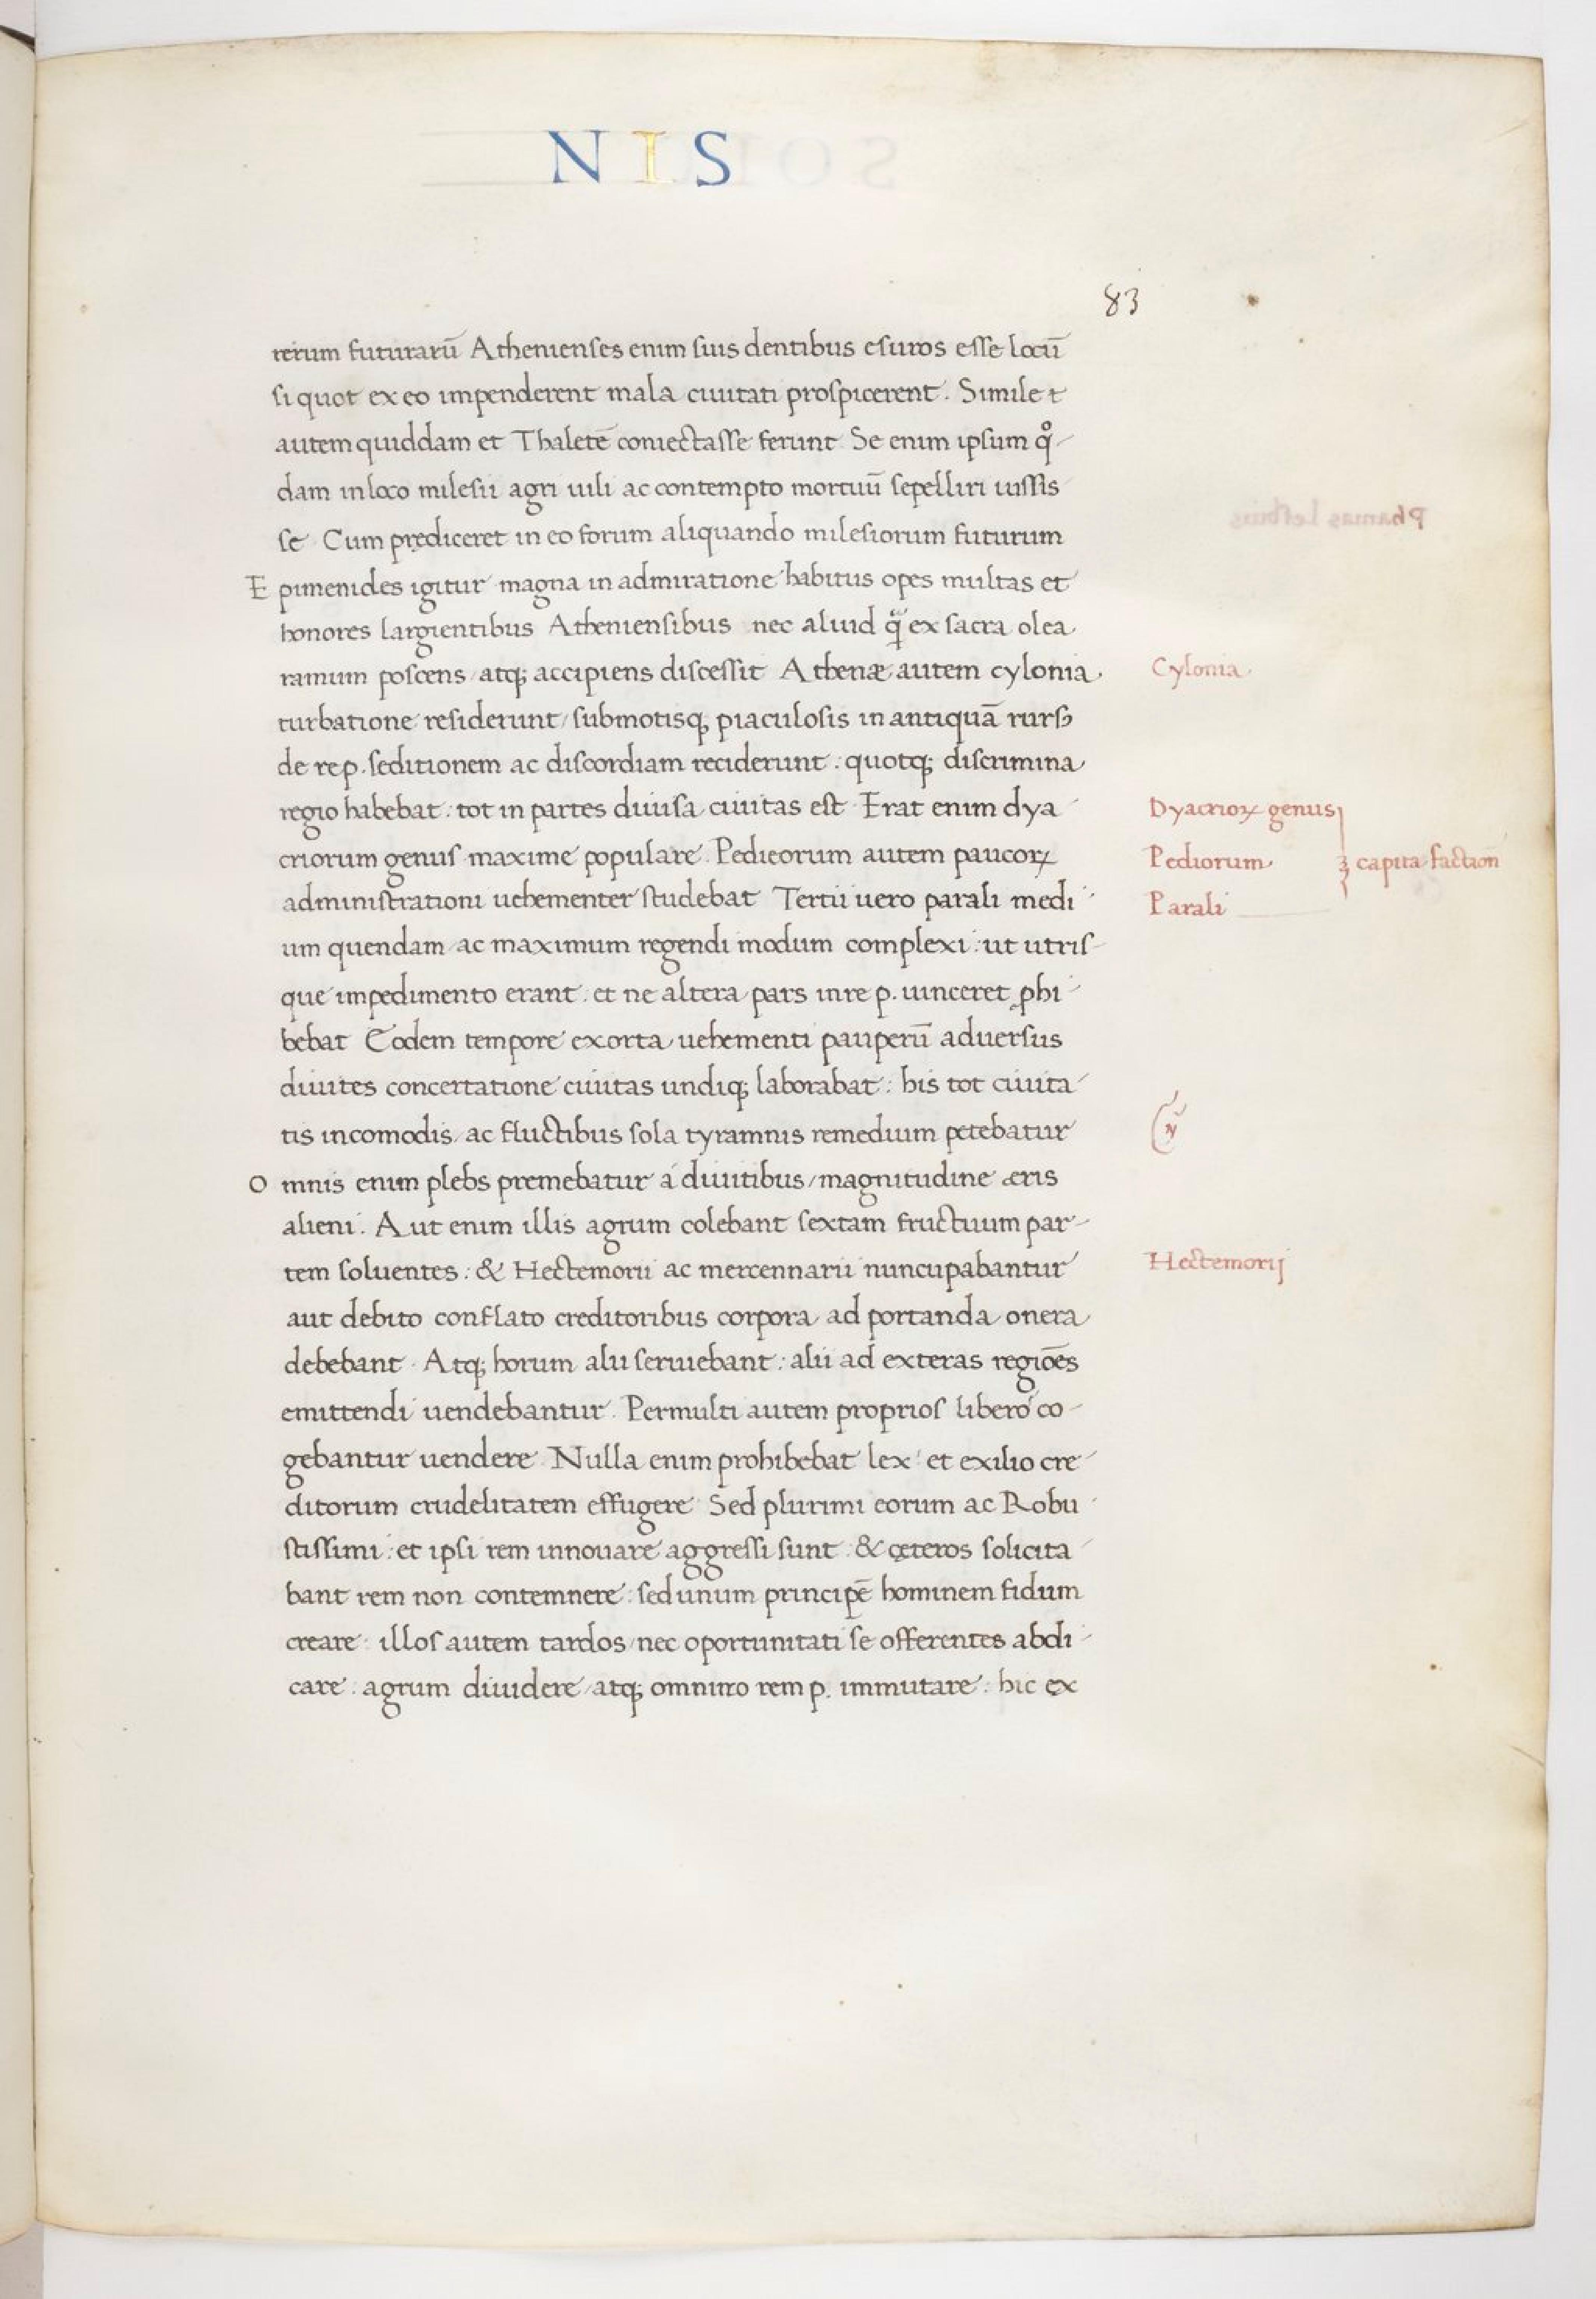 NIS
83
rerum futurarū Athenienses enim suis dentibus esuros esse locū
si quot ex eo impenderent mala ciuitati prospicerent. Simile t
autem quiddam et Thaletē coniectasse ferunt Se enim ipsum qͦ-
dam in loco milesii agri uili ac contempto mortuū sepelliri iussis
se Cum prędiceret in eo forum aliquando milesiorum futurum
Epimenides igitur magna in admiratione habitus opes multas et
honores largientibus Atheniensibus nec aliud qͣ̄ ex sacra olea
ramum poscens / atq; accipiens discessit Athenæ autem cylonia
turbatione residerunt / submotisq; piaculosis in antiquā rursꝰ
de re p. seditionem ac discordiam reciderunt : quotq; discrimina
regio habebat : tot in partes diuisa ciuitas est Erat enim dya
criorum genus maxime populare. Pedieorum autem paucoꝝ
administrationi uehementer studebat Tertii uero parali medi
um quendam ac maximum regendi modum complexi : ut utris-
que impedimento erant : et ne altera pars in re p. uinceret ꝓhi
bebat Eodem tempore exorta uehementi pauperū aduersus
diuites concertatione ciuitas undiq; laborabat : his tot ciuita
tis incomodis / ac fluctibus sola tyramnis remedium petebatur
Omnis enim plebs premebatur á diuitibus / magnitudine æris
alieni. Aut enim illis agrum colebant sextam fructuum par-
tem soluentes : & Hectemorii ac mercennarii nuncupabantur
aut debito conflato creditoribus corpora ad portanda onera
debebant. Atq; horum alii seruiebant : alii ad exteras regiōes
emittendi uendebantur. Permulti autem proprios libero' co-
gebantur uendere Nulla enim prohibebat lex : et exilio cre
ditorum crudelitatem effugere Sed plurimi eorum ac Robu
stissimi : et ipsi rem innouare aggressi sunt : & cęteros solicita
bant rem non contemnere : sed unum principē hominem fidum
creare : illos autem tardos / nec oportunitati se offerentes abdi
care : agrum diuidere / atq; omnino rem p. immutare : hic ex
Cylonia
Dyacrioꝝ genus
Pediorum
3 capita faction̄
Parali
Hectemorij